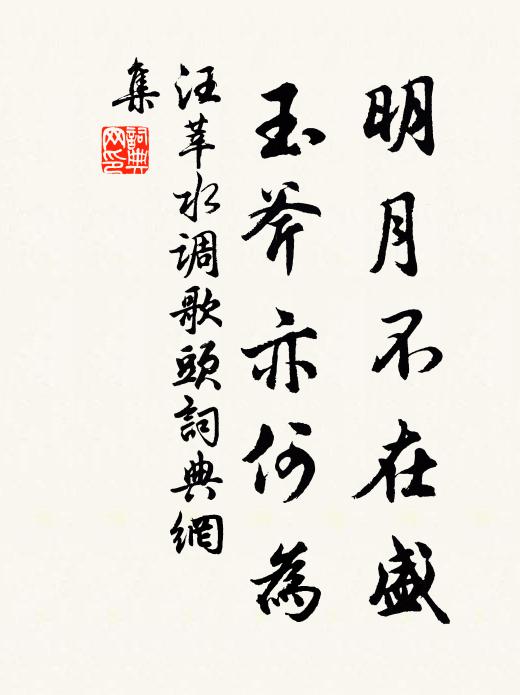 明月不在盛
玉斧亦何為
汪莘水調歌頭詞典網
集
詞典
网印